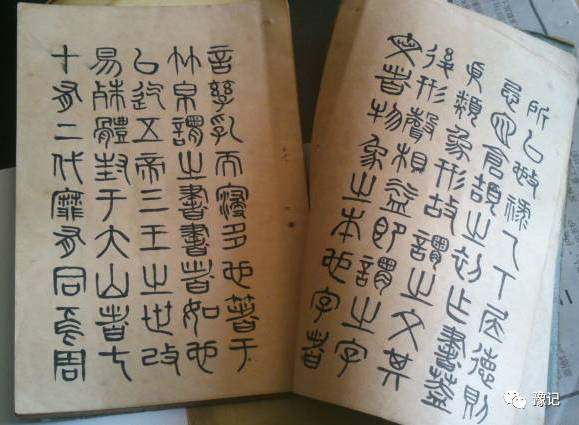 所以施祿及下居德則
忌也倉頡之初作書蓋
依類象形故謂之文其
後形聲相益即謂之字
文者物象之本也字者
言孳乳而寖多也著于
竹帛謂之書書者如也
以迄五帝三王之世改
易殊體封于大山者七
十有二代靡有同焉周
豫记